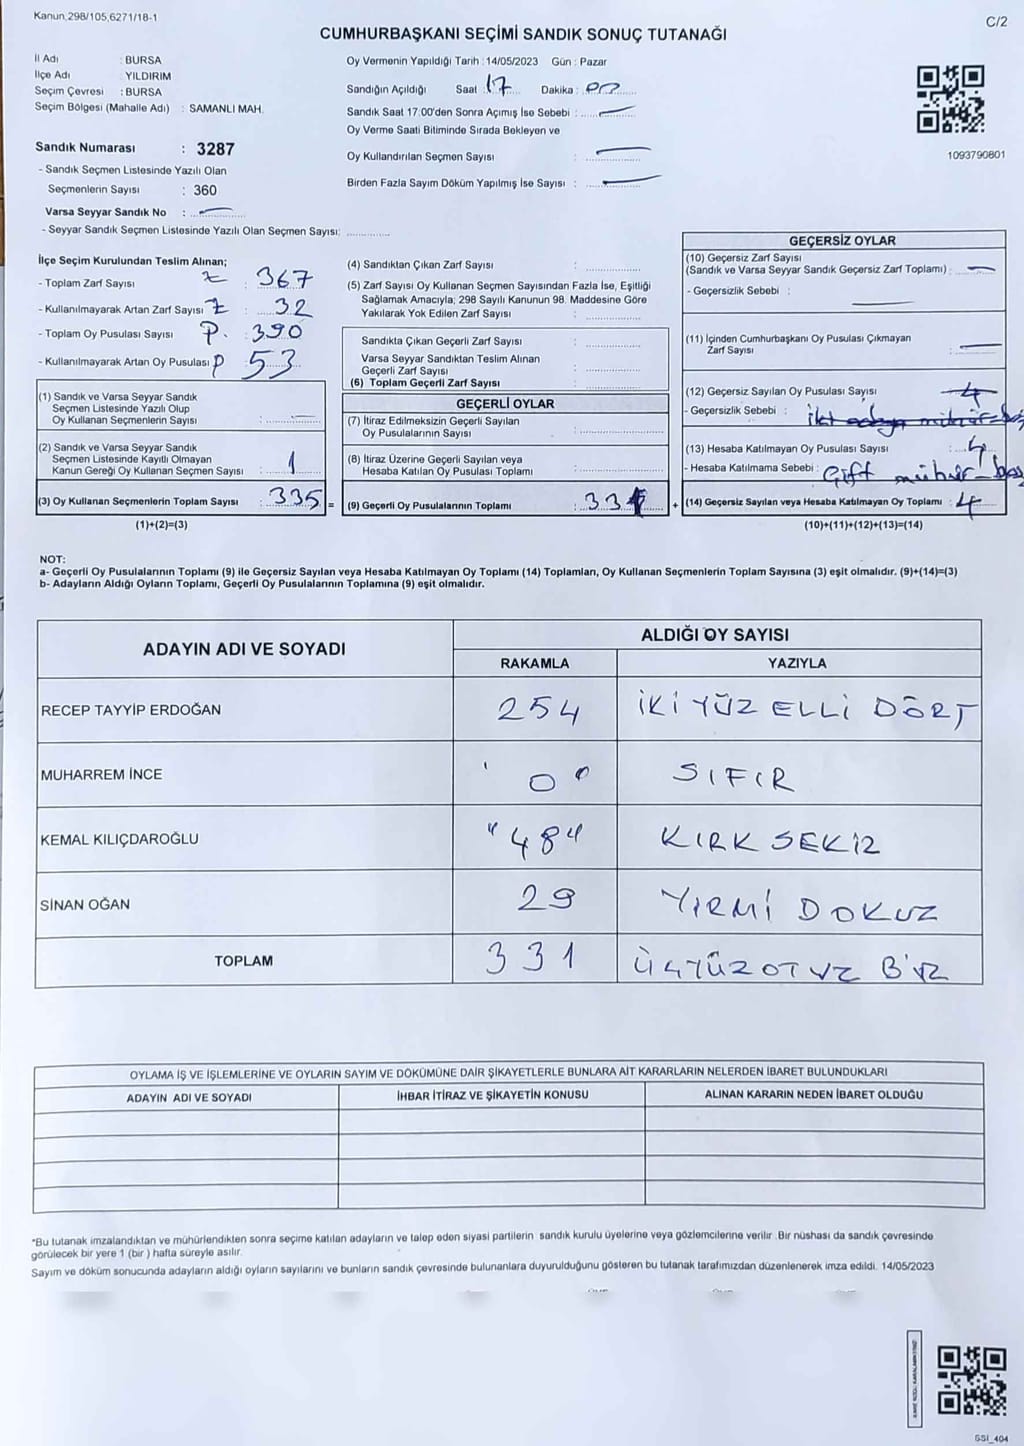 Kanun,298/105,6271/18-1
C/2
CUMHURBAŞKANI SEÇİMİ SANDIK SONUÇ TUTANAĞI
İl Adı : BURSA
İlçe Adı : YILDIRIM
Seçim Çevresi : BURSA
Seçim Bölgesi (Mahalle Adı) : SAMANLI MAH.
Oy Vermenin Yapıldığı Tarih : 14/05/2023 Gün : Pazar
Sandığın Açıldığı Saat : 17 Dakika :
Sandık Saat 17:00'den Sonra Açımış İse Sebebi :
Oy Verme Saati Bitiminde Sırada Bekleyen ve
Oy Kullandırılan Seçmen Sayısı :
Birden Fazla Sayım Döküm Yapılmış İse Sayısı :
1093790801
Sandık Numarası : 3287
- Sandık Seçmen Listesinde Yazılı Olan
Seçmenlerin Sayısı : 360
Varsa Seyyar Sandık No :
- Seyyar Sandık Seçmen Listesinde Yazılı Olan Seçmen Sayısı:
İlçe Seçim Kurulundan Teslim Alınan;
- Toplam Zarf Sayısı Z : 367
- Kullanılmayarak Artan Zarf Sayısı Z : 32
- Toplam Oy Pusulası Sayısı P. : 390
- Kullanılmayarak Artan Oy Pusulası P 53
(1) Sandık ve Varsa Seyyar Sandık
Seçmen Listesinde Yazılı Olup
Oy Kullanan Seçmenlerin Sayısı :
(2) Sandık ve Varsa Seyyar Sandık
Seçmen Listesinde Kayıtlı Olmayan
Kanun Gereği Oy Kullanan Seçmen Sayısı : 1
(3) Oy Kullanan Seçmenlerin Toplam Sayısı : 335 =
(1)+(2)=(3)
(4) Sandıktan Çıkan Zarf Sayısı :
(5) Zarf Sayısı Oy Kullanan Seçmen Sayısından Fazla İse, Eşitliği
Sağlamak Amacıyla; 298 Sayılı Kanunun 98. Maddesine Göre
Yakılarak Yok Edilen Zarf Sayısı :
Sandıkta Çıkan Geçerli Zarf Sayısı :
Varsa Seyyar Sandıktan Teslim Alınan
Geçerli Zarf Sayısı :
(6) Toplam Geçerli Zarf Sayısı :
GEÇERLİ OYLAR
(7) İtiraz Edilmeksizin Geçerli Sayılan
Oy Pusulalarının Sayısı :
(8) İtiraz Üzerine Geçerli Sayılan veya
Hesaba Katılan Oy Pusulası Toplamı :
(9) Geçerli Oy Pusulalarının Toplamı : 331 +
GEÇERSİZ OYLAR
(10) Geçersiz Zarf Sayısı
(Sandık ve Varsa Seyyar Sandık Geçersiz Zarf Toplamı) :
- Geçersizlik Sebebi :
(11) İçinden Cumhurbaşkanı Oy Pusulası Çıkmayan
Zarf Sayısı :
(12) Geçersiz Sayılan Oy Pusulası Sayısı 4
- Geçersizlik Sebebi : iki adaya mühür
(13) Hesaba Katılmayan Oy Pusulası Sayısı : 4
- Hesaba Katılmama Sebebi : Çift mühür
(14) Geçersiz Sayılan veya Hesaba Katılmayan Oy Toplamı : 4
(10)+(11)+(12)+(13)=(14)
NOT:
a- Geçerli Oy Pusulalarının Toplamı (9) ile Geçersiz Sayılan veya Hesaba Katılmayan Oy Toplamı (14) Toplamları, Oy Kullanan Seçmenlerin Toplam Sayısına (3) eşit olmalıdır. (9)+(14)=(3)
b- Adayların Aldığı Oyların Toplamı, Geçerli Oy Pusulalarının Toplamına (9) eşit olmalıdır.
ADAYIN ADI VE SOYADI
ALDIĞI OY SAYISI
RAKAMLA YAZIYLA
RECEP TAYYİP ERDOĞAN 254 İKİ YÜZ ELLİ DÖRT
MUHARREM İNCE ' 0 " SIFIR
KEMAL KILIÇDAROĞLU "48" KIRK SEKİZ
SİNAN OĞAN 29 YİRMİ DOKUZ
TOPLAM 331 ÜÇYÜZOTUZ BİR
OYLAMA İŞ VE İŞLEMLERİNE VE OYLARIN SAYIM VE DÖKÜMÜNE DAİR ŞİKAYETLERLE BUNLARA AİT KARARLARIN NELERDEN İBARET BULUNDUKLARI
ADAYIN ADI VE SOYADI İHBAR İTİRAZ VE ŞİKAYETİN KONUSU ALINAN KARARIN NEDEN İBARET OLDUĞU
*Bu tutanak imzalandıktan ve mühürlendikten sonra seçime katılan adayların ve talep eden siyasi partilerin sandık kurulu üyelerine veya gözlemcilerine verilir .Bir nüshası da sandık çevresinde
görülecek bir yere 1 (bir ) hafta süreyle asılır.
Sayım ve döküm sonucunda adayların aldığı oyların sayılarını ve bunların sandık çevresinde bulunanlara duyurulduğunu gösteren bu tutanak tarafımızdan düzenlenerek imza edildi. 14/05/2023
GSI_404